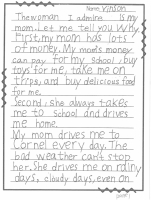 Name: Vinson
The woman I admire is my
mom. Let me tell you why.
First, my mom has lots
of money. My mom's money
can pay for my school, buy
toys for me, take me on
trips, and buy delicious food
for me.
Second, she always takes
me to school and drives
me home.
My mom drives me to
Cornel every day. The
bad weather can't stop
her. She drives me on rainy
days, cloudy days, even on